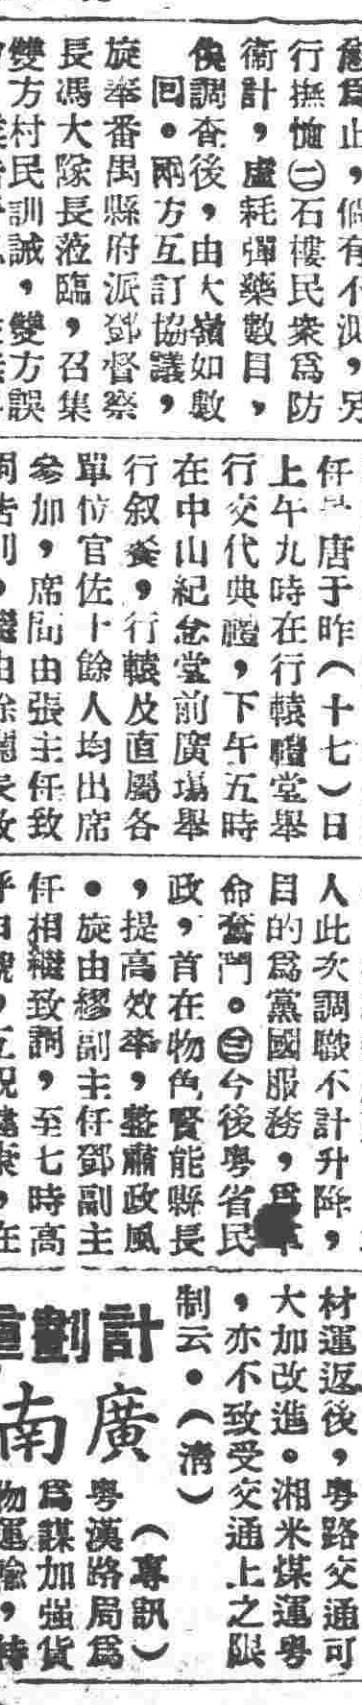 行撫恤㈡石樓民衆爲防
衞計，虛耗彈藥數目，
俟調查後，由大嶺如數
回。兩方互訂協議，
旋奉番禺縣府派鄧督察
長馮大隊長蒞臨，召集
雙方村民訓誡，雙方誤
任唐于昨（十七）日
上午九時在行轅禮堂舉
行交代典禮，下午五時
在中山紀念堂前廣場舉
行叙餐，行轅及直屬各
單位官佐十餘人均出席
參加，席間由張主任致
人此次調職不計升降，
目的爲黨國服務，爲革
命奮鬥。㈢今後粵省民
政，首在物色賢能縣長
，提高效率，整肅政風
。旋由繆副主任鄧副主
任相繼致詞，至七時高
材運返後，粵路交通可
大加改進。湘米煤運粵
，亦不致受交通上之限
制云。（淸）
計劃
廣南
（專訊）
粵漢路局爲
爲謀加強貨
物運輸，特